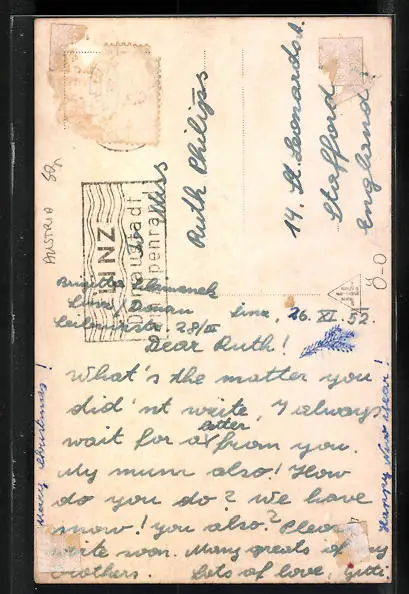 To Miss
Ruth Philips
14. St. Leonards A.
Stafford
England!
AUSTRIA
LINZ
Donaustadt
Alpenrand
Brigitte
Linz, Donau
28/III
Linz, 26. XI. 52.
Dear Ruth!
What's the matter you
did'nt write, I always
wait for a letter from you.
My mum also! How
do you do? We have
snow! you also? Please
write soon. Many greats of my
brothers. Lots of love, Gitti
Merry Christmas!
Happy New Year!
Ö-0